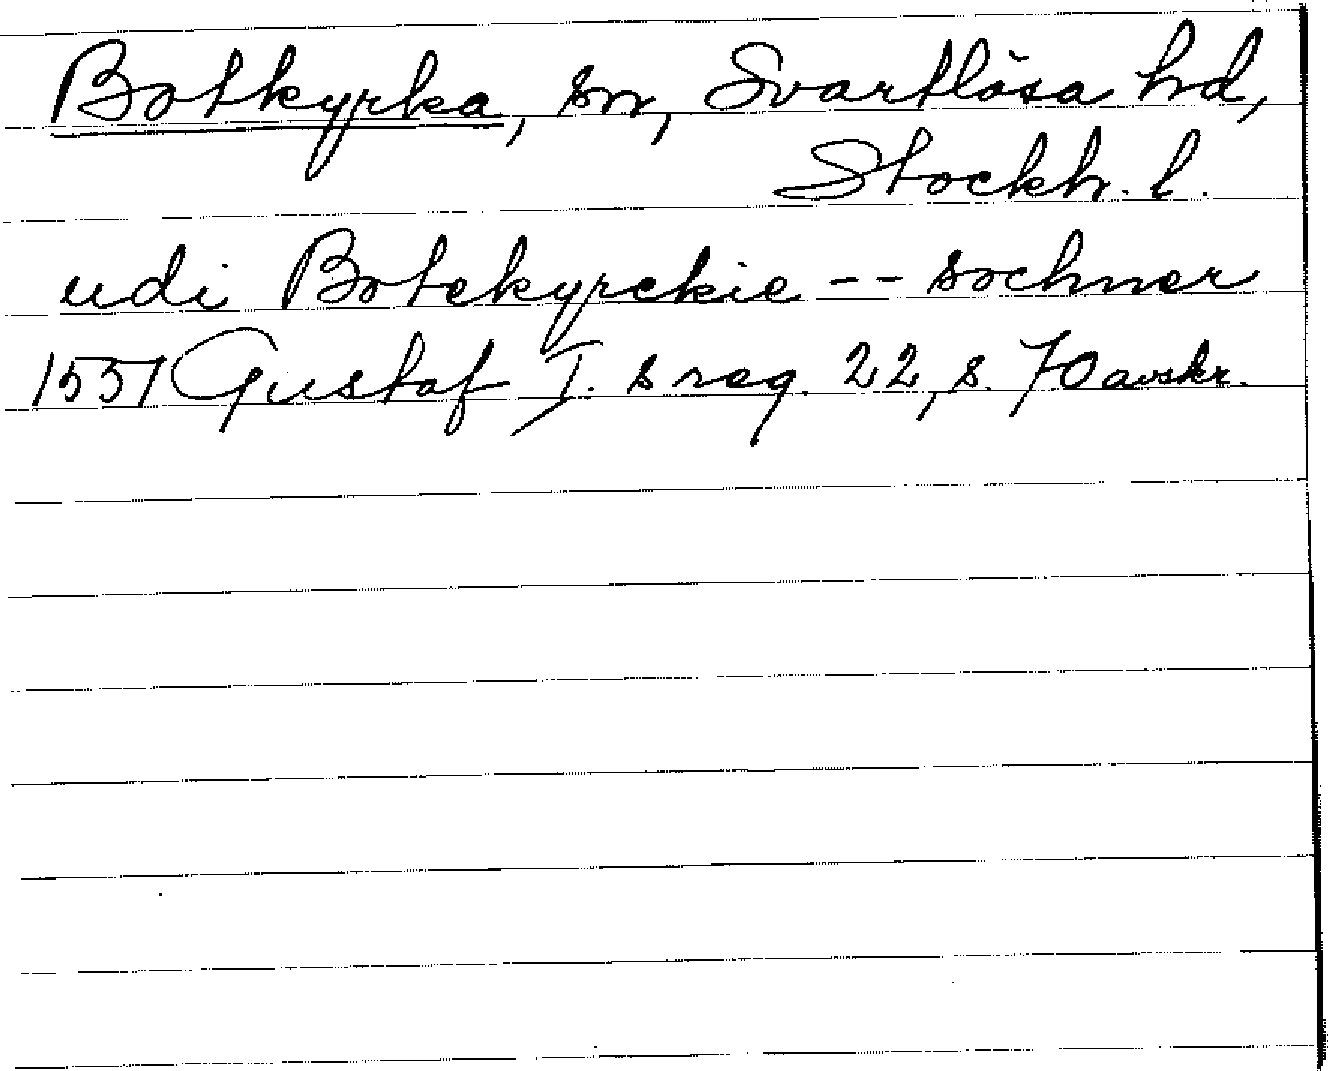 Botkyrka, sn, Svartlösa hd,
Stockh. l.
udi Botekyrckie -- sochner
1551 Gustaf I. s reg. 22, s. 70 avskr.